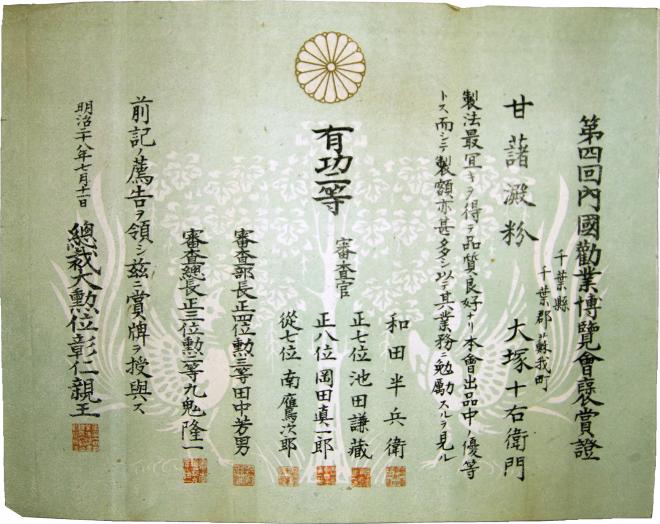 第四回內國勸業博覽會襃賞證
千葉縣
千葉郡蘇我町
甘藷澱粉　大塚十右衛門
製法最宜キヲ得テ品質良好ナリ本會出品中ノ優等
トス而シテ製額亦甚多シ以テ其業務ニ勉勵スルヲ見ル
有功二等
審査官
和田半兵衛
正七位池田謙藏
正八位岡田真一郎
從七位南鷹次郎
審査部長正四位勲三等田中芳男
審査總長正三位勲二等九鬼隆一
前記ノ薦告ヲ領シ茲ニ賞牌ヲ授與ス
明治二十八年七月十一日
總裁大勲位彰仁親王